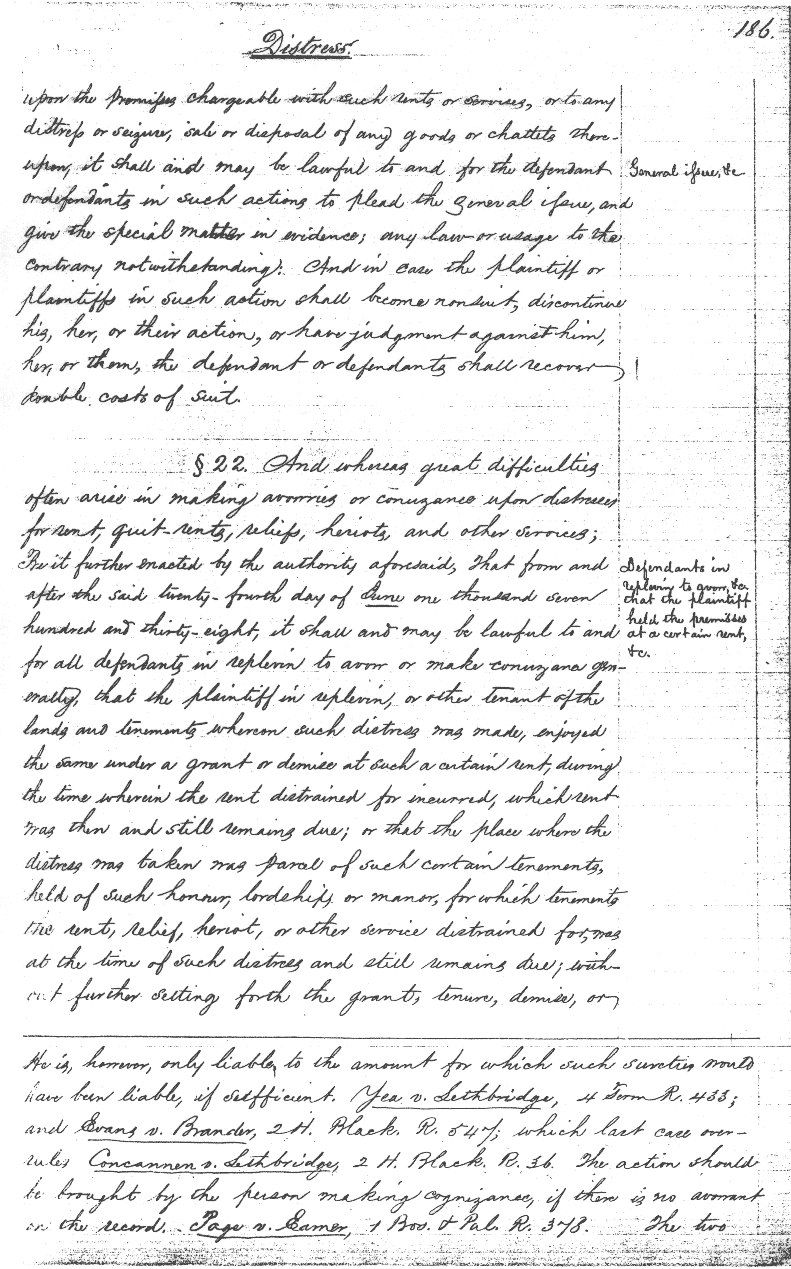 186.
Distress.
upon the Premises chargeable with such rents or services, or to any
distress or seizure, sale or disposal of any goods or chattels there-
upon, it shall and may be lawful to and for the defendant
or defendants in such actions to plead the general issue, and
give the special matter in evidence; any law or usage to the
contrary notwithstanding: And in case the plaintiff or
plaintiffs in such action shall become nonsuit, discontinue
his, her, or their action, or have judgment against him,
her, or them, the defendant or defendants shall recover
double costs of suit.
General issue, &c
§ 22. And whereas great difficulties
often arise in making avowries or conuzance upon distresses
for rent, quit-rents, reliefs, heriots, and other services;
Be it further enacted by the authority aforesaid, That from and
after the said twenty-fourth day of June one thousand seven
hundred and thirty-eight, it shall and may be lawful to and
for all defendants in replevin to avow or make conuzance gen-
erally, that the plaintiff in replevin, or other tenant of the
lands and tenements whereon such distress was made, enjoyed
the same under a grant or demise at such a certain rent, during
the time wherein the rent distrained for incurred, which rent
was then and still remains due; or that the place where the
distress was taken was parcel of such certain tenements,
held of such honour, lordship, or manor, for which tenements
the rent, relief, heriot, or other service distrained for, was
at the time of such distress and still remains due; with-
out further setting forth the grant, tenure, demise, or
Defendants in
replevin to avow, &c.
that the plaintiff
held the premises
at a certain rent,
&c.
He is, however, only liable to the amount for which such sureties would
have been liable, if sufficient. Yea v. Lethbridge, 4 Term R. 433;
and Evans v. Brander, 2 H. Black. R. 547; which last case over-
rules Concannen v. Lethbridge, 2 H. Black. R. 36. The action should
be brought by the person making cognizance, if there is no avowant
on the record. Page v. Eamer, 1 Bos. & Pul. R. 378. The two